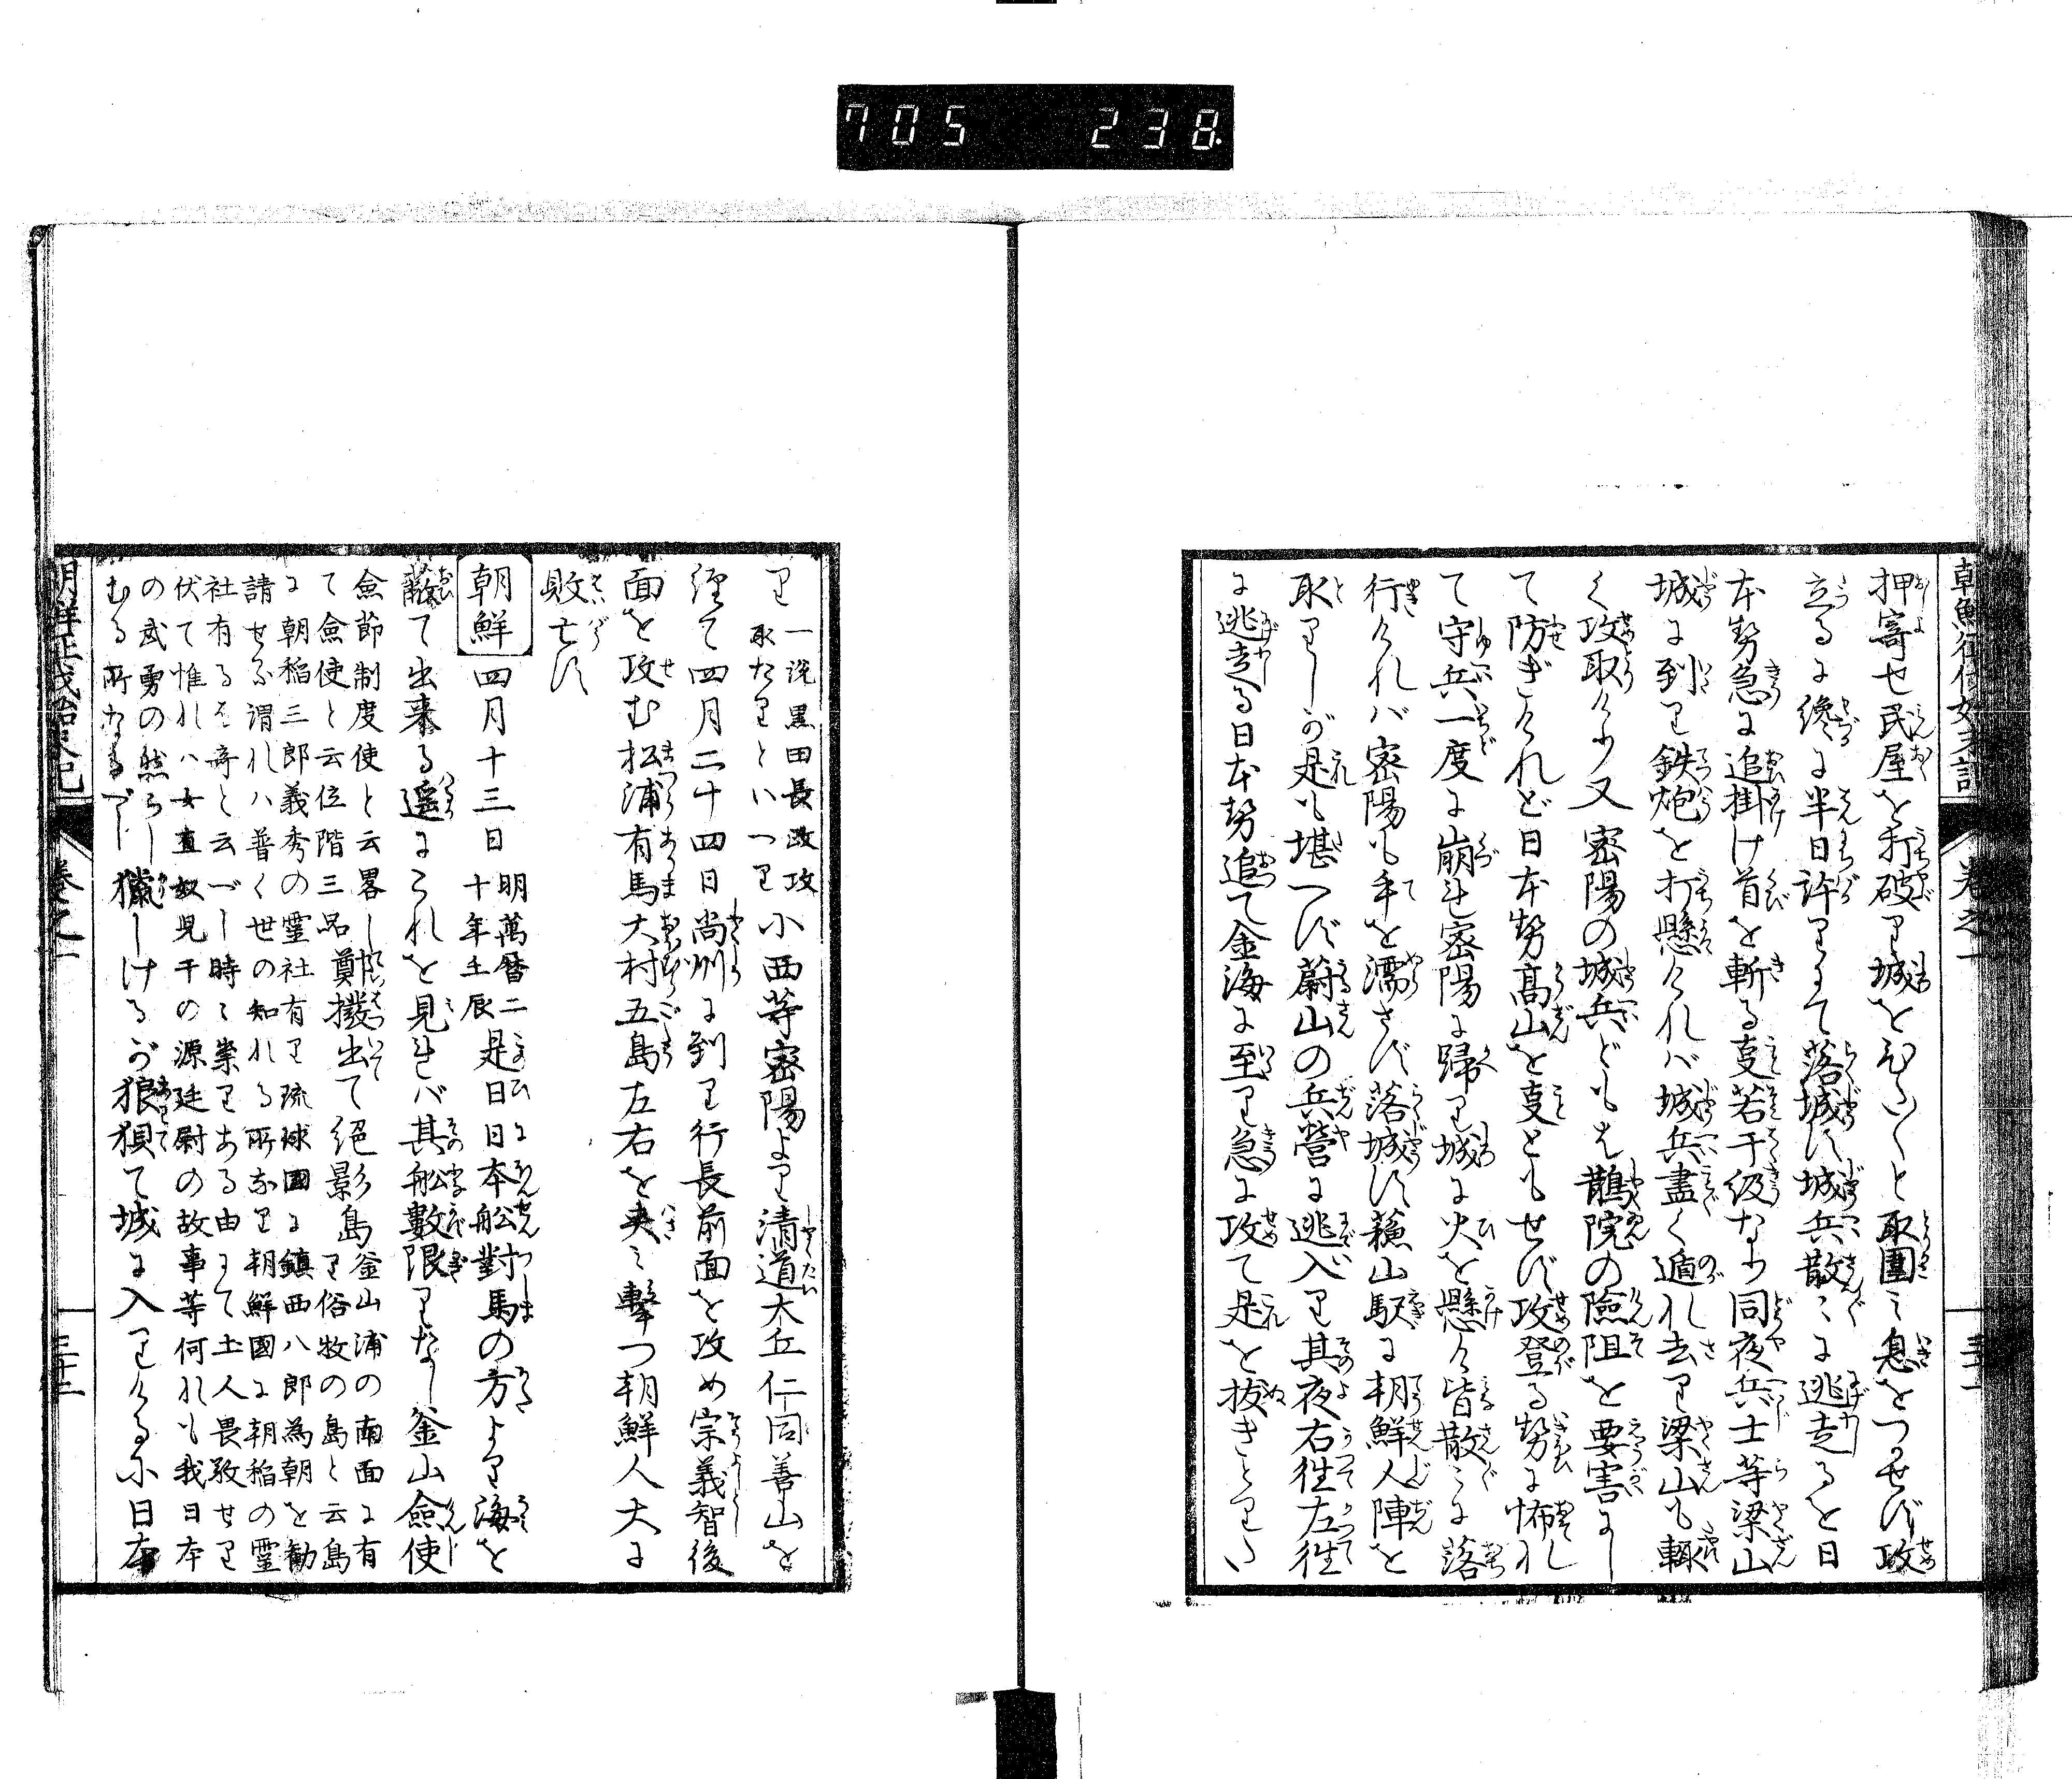 705 238
朝鮮征伐始末記
卷之一
三十一
押寄せ民屋を打破り城をひし〱と取圍み息をつかせず攻
立るに纔に半日許りにて落城す城兵散〻に逃走るを日
本勢急に追掛け首を斬る叓若干級なり同夜兵士等梁山
城に到り鉄炮を打懸ければ城兵盡く遁れ去り梁山も輙
く攻取けり又密陽の城兵どもは鵲院の險阻を要害にし
て防ぎけれど日本勢高山を叓ともせず攻登る勢に怖れし
て守兵一度に崩れ密陽に歸り城に火を懸け皆散〻に落
行ければ密陽も手を濡さず落城す蘓山駅に朝鮮人陣を
取りしが是も堪へず蔚山の兵營に逃入り其夜右往左往
に逃走る日本勢追て金海に至り急に攻て是を抜きとりい
り一説黒田長政攻
取たりといへり小西等密陽より清道大丘仁同善山を
經て四月二十四日尚州に到り行長前面を攻め宗義智後
面を攻む松浦有馬大村五島左右を夾み擊つ朝鮮人大に
敗亡す
朝鮮四月十三日明萬暦二
十年壬辰是日日本船對馬の方より海を
蔽て出来る遥にこれを見れば其船數限りなし釜山僉使
僉節制度使と云畧し
て僉使と云位階三品鄭撥出て絕影島釜山浦の南面に有
り俗牧の島と云島
に朝稲三郎義秀の靈社有り琉球國に鎮西八郎為朝を勧
請せる謂れハ普く世の知れる所なり朝鮮國に朝稲の靈
社有るは奇と云べし時〻崇りある由にて土人畏敬せり
伏て惟れハ女直奴兒干の源廷尉の故事等何れも我日本
の武勇の然らし
むる所なるべし獵しけるが狼狽て城に入りける尓日本
朝鮮征伐始末記
卷之一
三十二